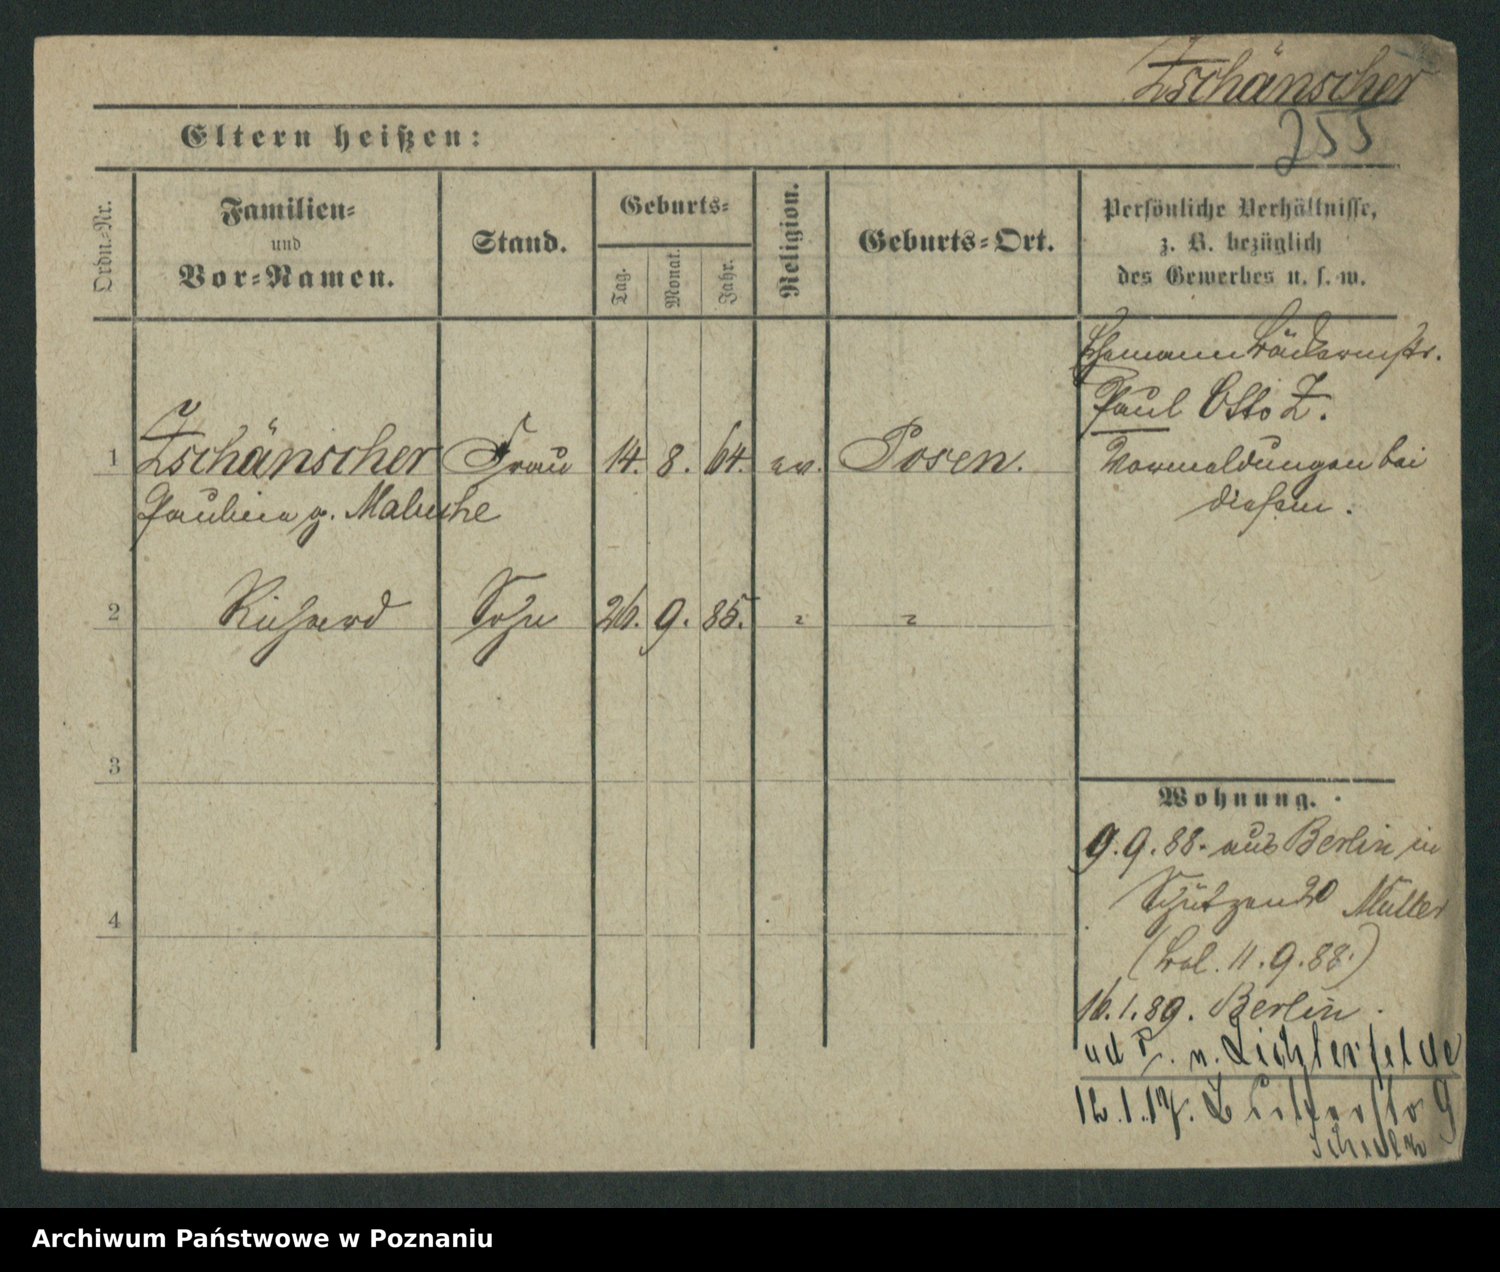 Zschänscher
255
Eltern heißen:
Ordn.-Nr.
Familien-
und
Vor-Namen.
Stand.
Geburts-
Tag.
Monat.
Jahr.
Religion.
Geburts-Ort.
Persönliche Verhältnisse,
z. B. bezüglich
des Gewerbes u. s. w.
Ehemann Bäckermstr.
Paul Otto Z.
Vormeldungen bei
diesem.
1 Zschänscher Frau 14. 8. 64. ev. Posen.
Pauline g.
2 Richard Sohn 26. 9. 85. " "
3
4
Wohnung.
9.9.88. aus Berlin in
Schützen 20 Müller
11.9.88.)
16.1.89. Berlin.
n. Lichterfelde
12.1.17.
9
Schulz
Archiwum Państwowe w Poznaniu